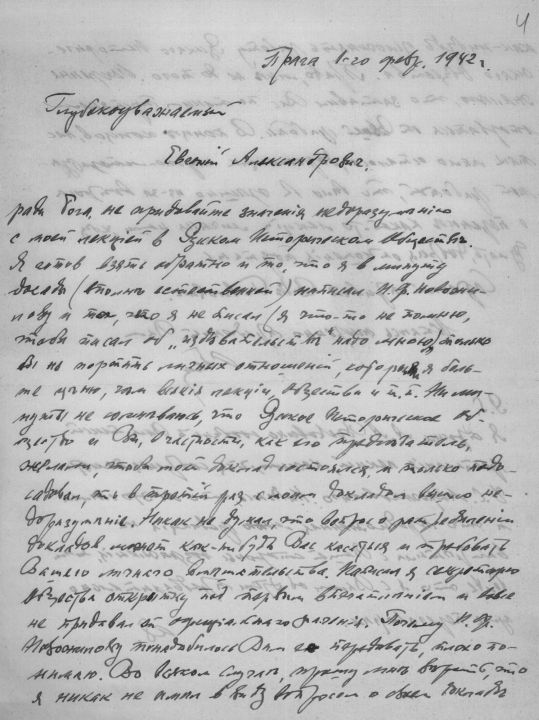 4
Прага 1-го февр. 1942 г.
Глубокоуважаемый
Евгений Александрович,
ради Бога, не придавайте значенія недоразуменію
с моей лекціей в Русском Историческом Обществѣ.
Я готов взять обратно и то, что я в минуту
досады (вполнѣ естественной) написал И. Ф. Новожи-
лову и то, что я не писал (я что-то не помню,
чтобы писал об „издѣвательствѣ" надо мною) только
бы не портить личных отношений, которыя я боль-
ше цѣню, чѣм всякія лекціи, общества и т. п. Ни ми-
нуты не сомнѣваюсь, что Русское Историческое Об-
щество и Вы, в частности, как его предсѣдатель,
желали, чтобы мой доклад состоялся, и только подо-
садовал, что в третій раз с моим докладом вышло не-
доразумѣніе. Никак не думал, что вопрос о распредѣленіи
докладов может как-нибудь Вас касаться и требовать
Вашего личного вмѣшательства. Написал я секретарю
Общества открытку под первым впечатлѣніем и
не придавал ей оффиціального значенія. Почему И. Ф.
Новожилову понадобилось Вам ее передавать, плохо по-
нимаю. Во всяком случаѣ, прошу мнѣ вѣрить, что
я никак не имѣл в виду вопросом о моем докладѣ